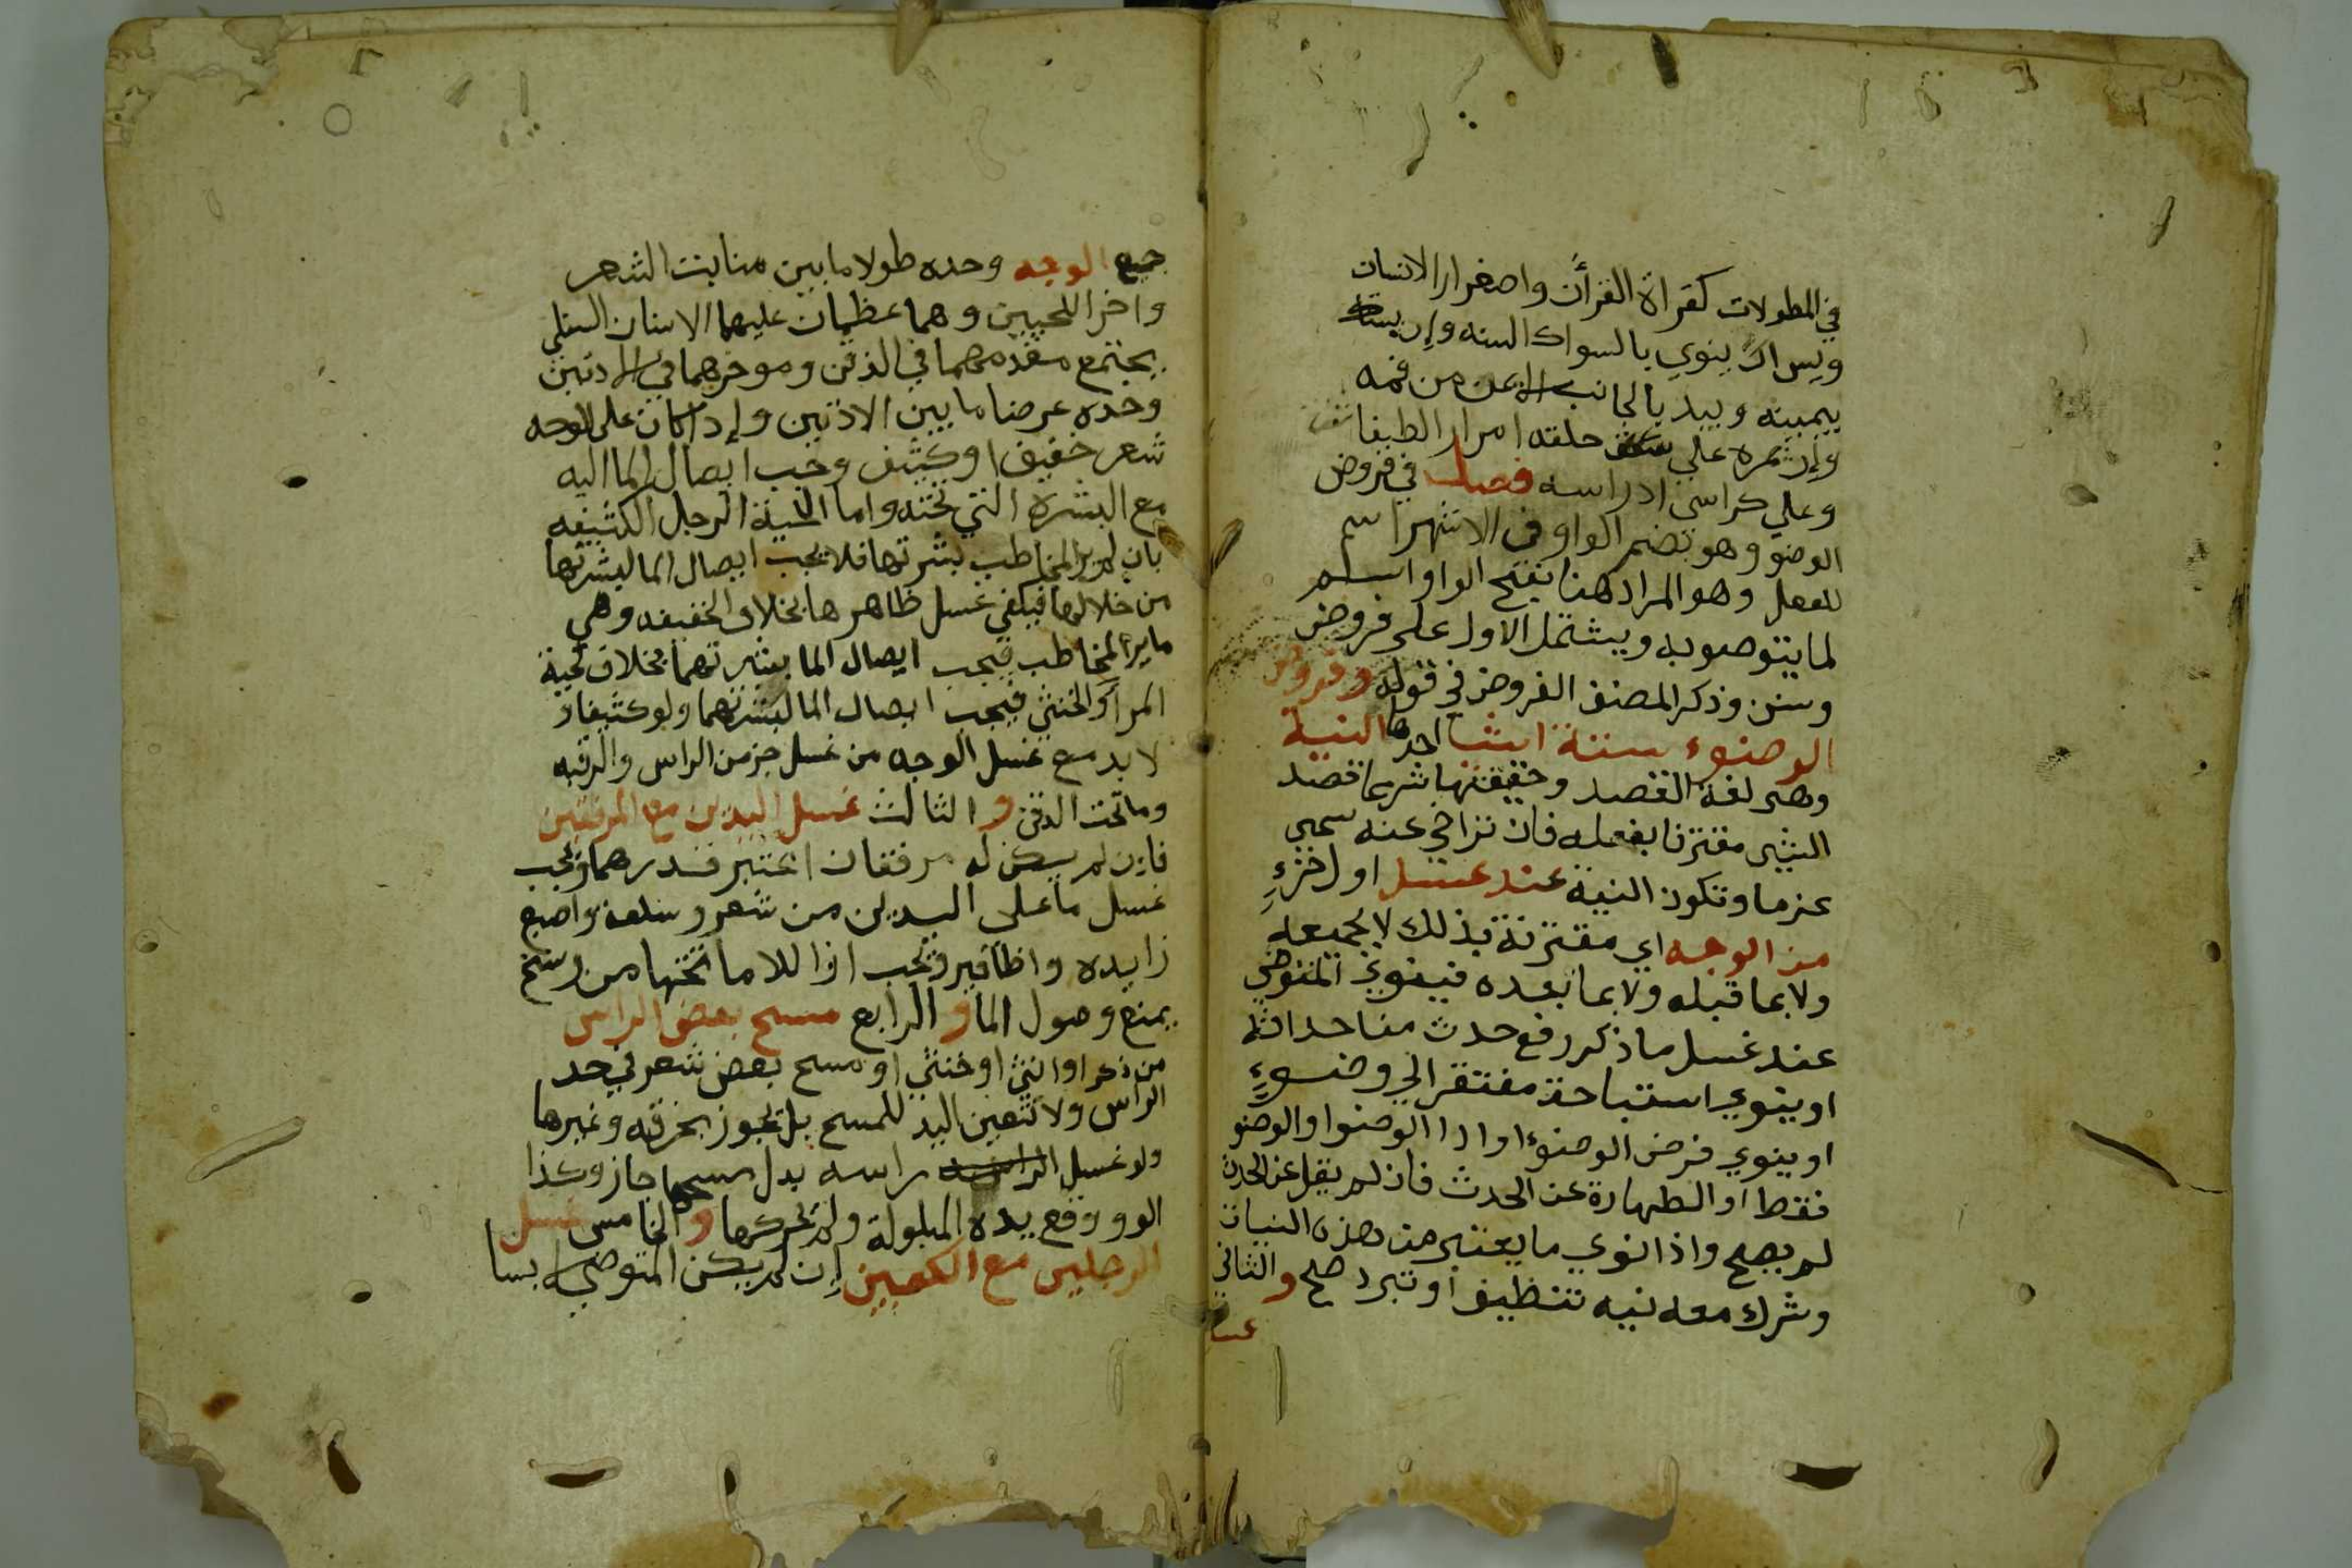 في المطولات كقراة القرأن واصفرار الاسنان
ويسن ان ينوي بالسواك السنه وان يستاك
بيمينه ويبدا بالجانب الايمن من فمه
وان يمره علي سقف حلقه امرارا لطيفا
وعلي كراسي اضراسه فصل في فروض
الوضو وهو بضم الواو في الاشهر اسم
للفعل وهو المراد هنا بفتح الواو اسم
لما يتوضوبه ويشتمل الاول على فروض
وسنن وذكر المصنف الفروض في قوله وفروض
الوضوء ستة اشيا احدها النية
وهي لغة القصد وحقيقتها شرعا قصد
الشي مقترنا بفعله فان تراخي عنه سمي
عزما وتكون النية عند غسل اول جزءٍ
من الوجه اي مقترنة بذلك لا بجميعه
ولا بما قبله ولا بما بعده فينوي المتوضي
عند غسل ما ذكر رفع حدث من احداثه
او ينوي استباحة مفتقر الي وضوءٍ
او ينوي فرض الوضوء او ادا الوضوا والوضو
فقط او الطهارة عن الحدث فان لم يقل عن الحدث
لم يصح واذا نوي ما يعتبر من هذه النيات
وشرك معه نيه تنظيف او تبرد صح والثاني
غسل
جميع الوجه وحده طولا ما بين منابت الشعر
واخر اللحيين وهما عظمان عليهما الاسنان السفلي
يجتمع مقدمهما في الذقن وموخرهما في الاذنين
وحده عرضا ما بين الاذنين وإذا كان على الوجه
شعر خفيف او كثيف وجب ايصال الما اليه
مع البشرة التي تحته واما لحية الرجل الكثيفه
بان لم ير المخاطب بشرتها فلا يجب ايصال الما لبشرتها
من خلالها فيكفي غسل ظاهرها بخلاف الخفيفه وهي
ما يرا المخاطب فيجب ايصال الما بشرتهما بخلاف لحية
المرأة والخنثي فيجب ايصال الما لبشرتهما ولو كثيفا و
لا بد مع غسل الوجه من غسل جز من الراس والرقبه
وما تحت الذقن و الثالث غسل اليدين مع المرفقين
فاين لم يكن له مرفقان اعتبر قدرهما ويجب
غسل ما على اليدين من شعر وسلعة واصبع
زايده واظافير ويجب ازاللا ما تحتها من وسخ
يمنع وصول الما و الرابع مسح بعض الراس
من ذكر او انثي او خنثي او مسح بعض شعر في حد
الراس ولا تتعين اليد للمسح بل يجوز بخرقه وغيرها
ولو غسل راسه بدل مسحها جاز وكذا
الوو وضع يده المبلولة ولم يحركها و الخامس غسل
الرجلين مع الكعبين إن لم يكن المتوضي لابسا